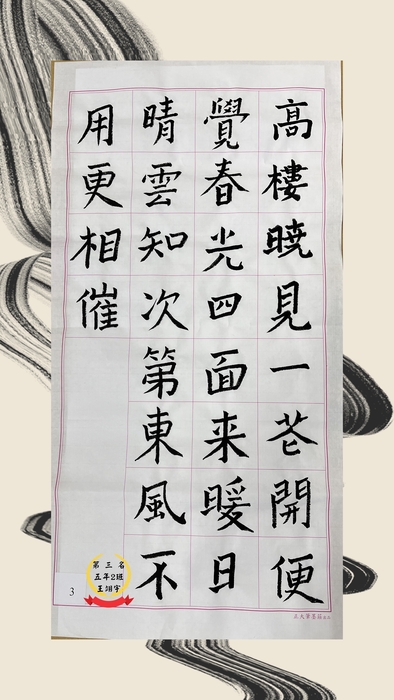 高樓曉見一花開便
覺春光四面来暖日
晴雲知次第東風不
用更相催
3
第三名
五年2班
王翊宇